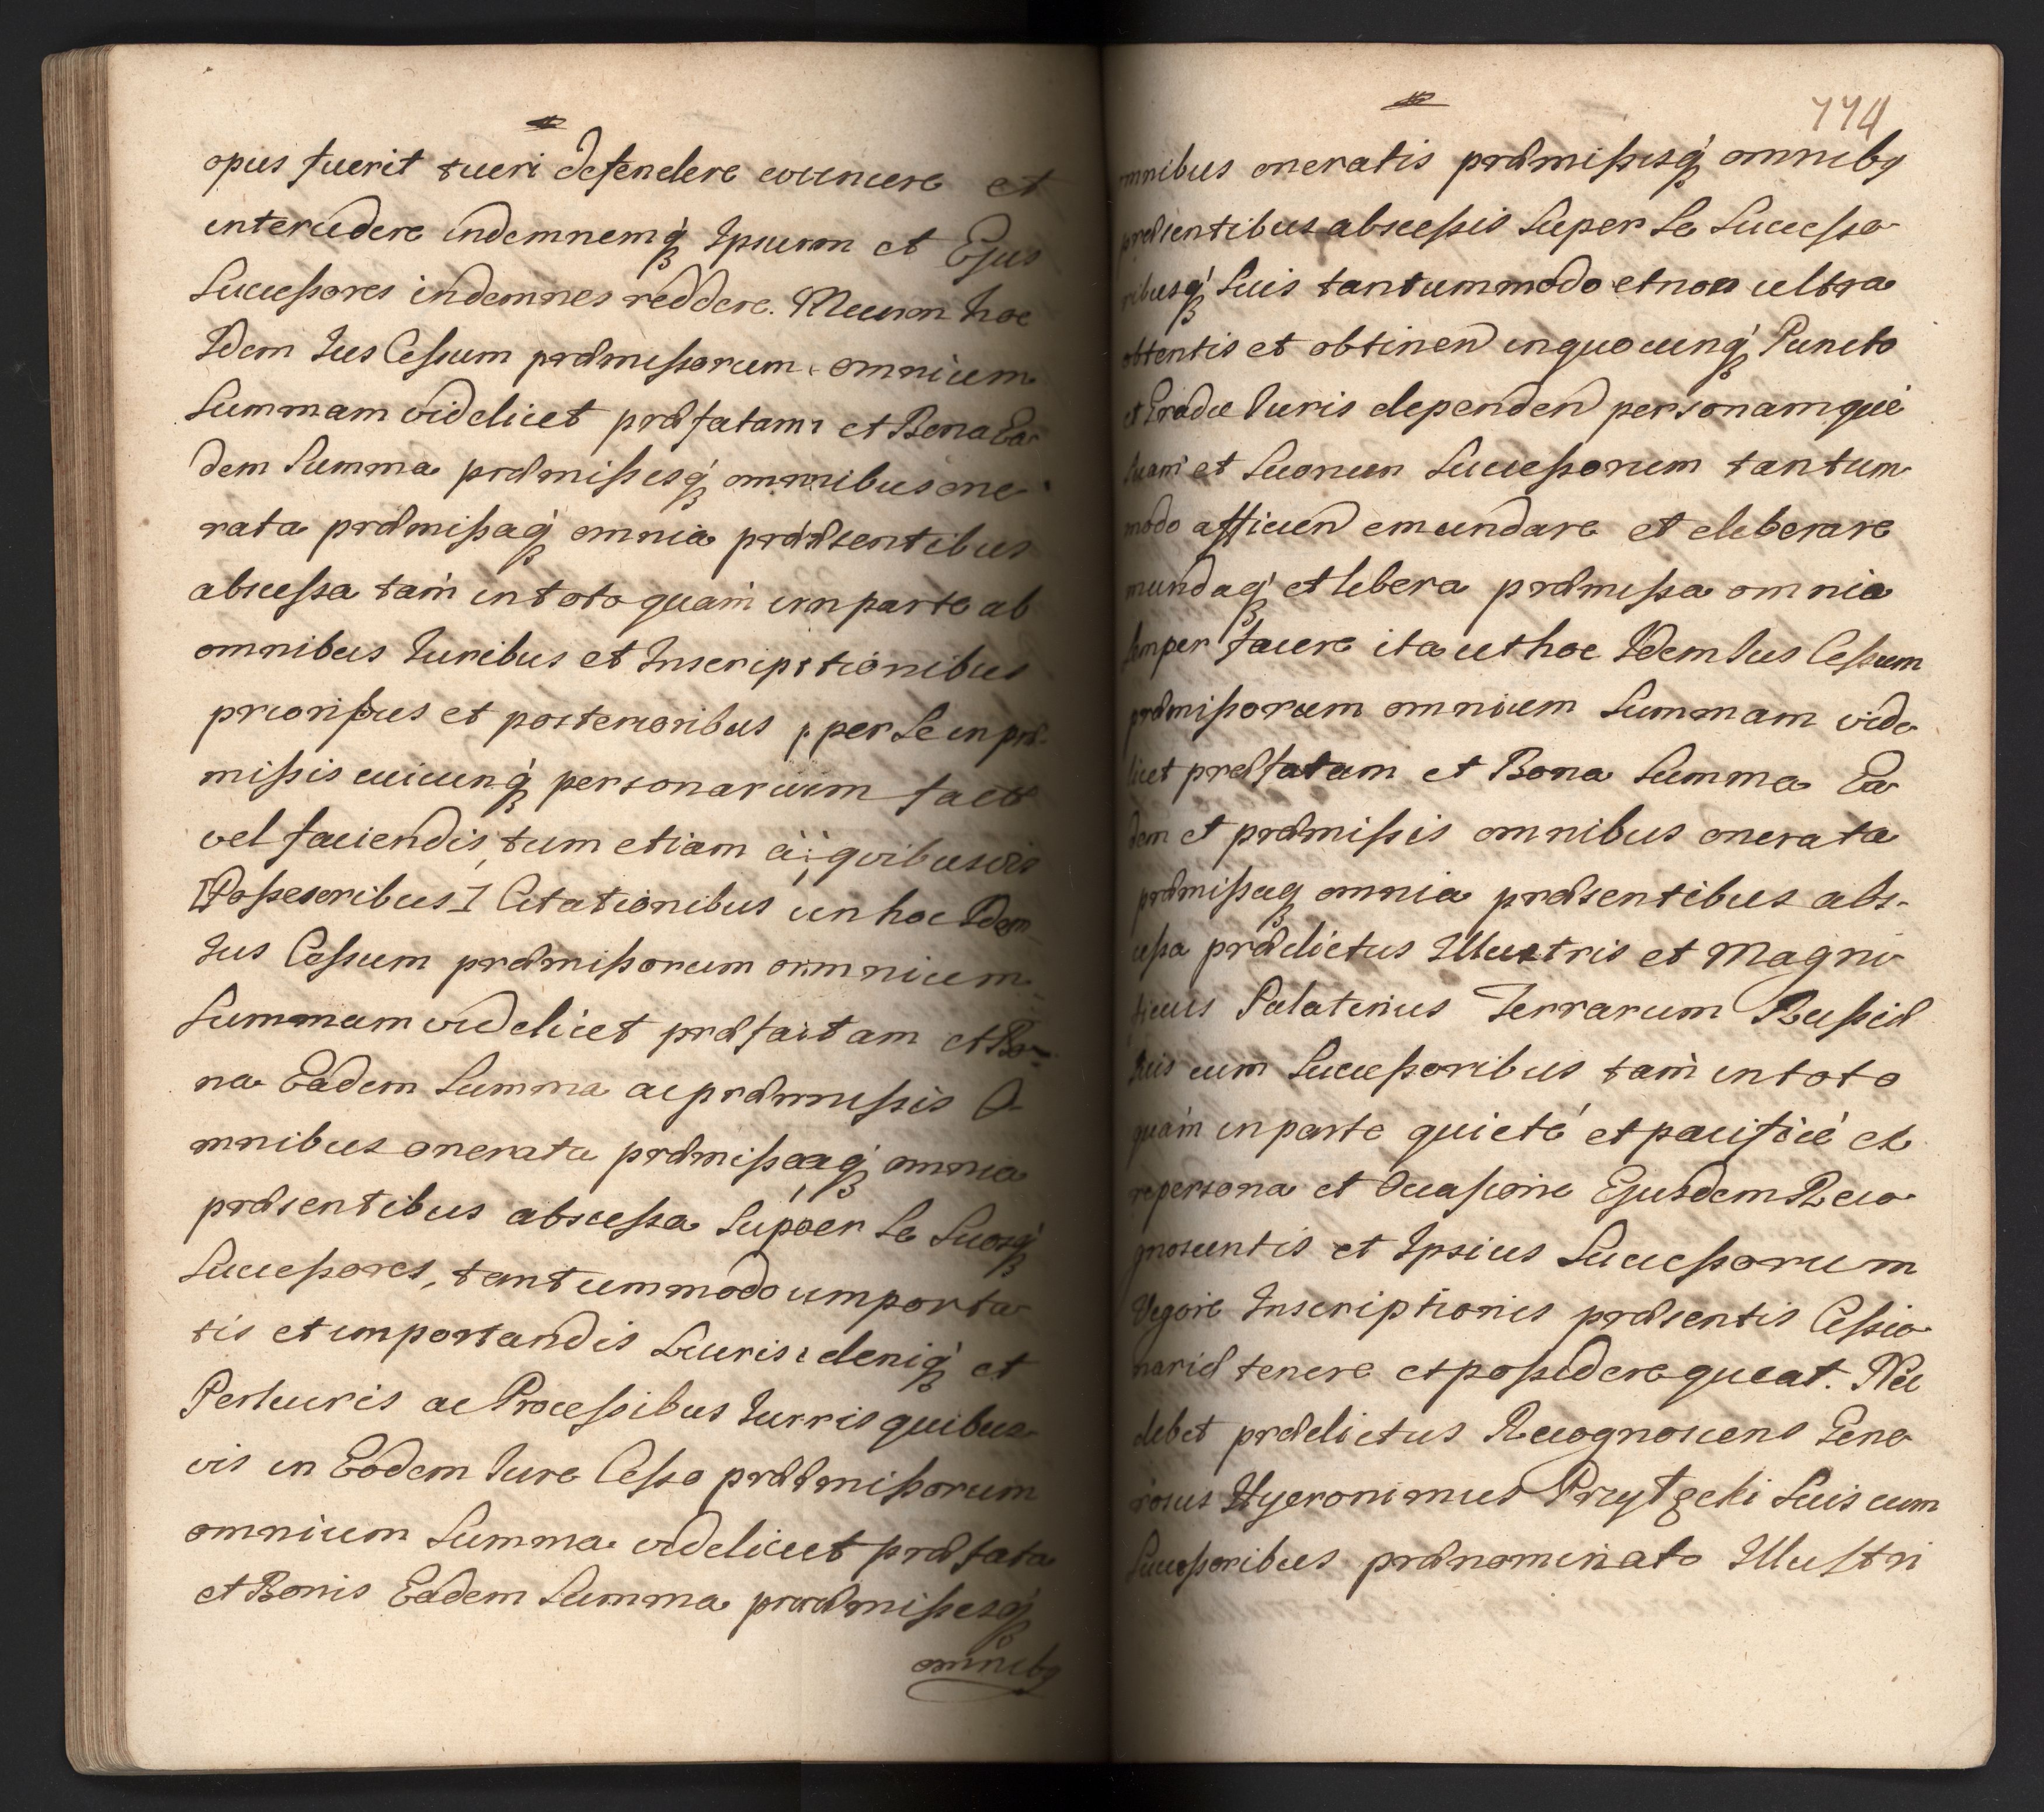 opus fuerit tueri defendere evincere et
intercedere indemnemq́ Ipsum et Ejus
Successores indemnes reddere. Necnon hoc
Idem Jus Cessum præmissorum omnium
Summam videlicet præfatam et Bona Ea
dem Summa præmissisq́ omnibus one
rata præmissaq́ omnia præsentibus
abscessa tam̀ in toto quam̀ in parte ab
omnibus Juribus et Inscriptionibus
prioribus et posterioribus per Se in præ-
missis cuicunq́ personarum fact
vel faciendis, tum etiam à quibusvis
[Possesoribus] Citationibus in hoc Idem
Jus Cessum præmissorum omnium
Summam videlicet præfatam et Bo-
na Eadem Summa ac præmissis O-
mnibus onerata præmissaq́ omnia
præsentibus abscessa Super Se Suosq́
Successores, tantummodo importa
tis et importandis Lucris deniq́ et
Perlucris ac Processibus Juris quibus
vis in Eodem Jure Cesso præmissorum
omnium Summa videlicet præfata
et Bonis Eadem Summa præmissisq́
omnibq
774
omnibus oneratis præmissisq́ omnibq
præsentibus abscessis Super Se Successo
ribusq́ Suis tantummodo et non ultra
obtentis et obtinen in quocunq́ Puncto
et Gradu Juris dependen personamque
Suam et Suorum Successorum tantum
modo afficien emundare et eliberare
mundaq́ et libera præmissa omnia
Semper facere ita ut hoc Idem Jus Cessum
præmissorum omnium Summam vide
licet præfatam et Bona Summa Ea
dem et præmissis omnibus onerata
præmissaq omnia præsentibus abs-
cessa prædictus Illustris et Magni
ficus Palatinus Terrarum Russiæ
Suis cum Successoribus tam̀ in toto
quam̀ in parte quietè et pacificè ab
re persona et Occasione Ejusdem Reco
gnoscentis et Ipsius Successorum
Vigore Inscriptionis præsentis Cessio
nariæ tenere et possidere queat. Nec
debet prædictus Recognoscens Gene
rosus Hyeronimus Przytęcki Suis cum
Successoribus prænominato Illustri